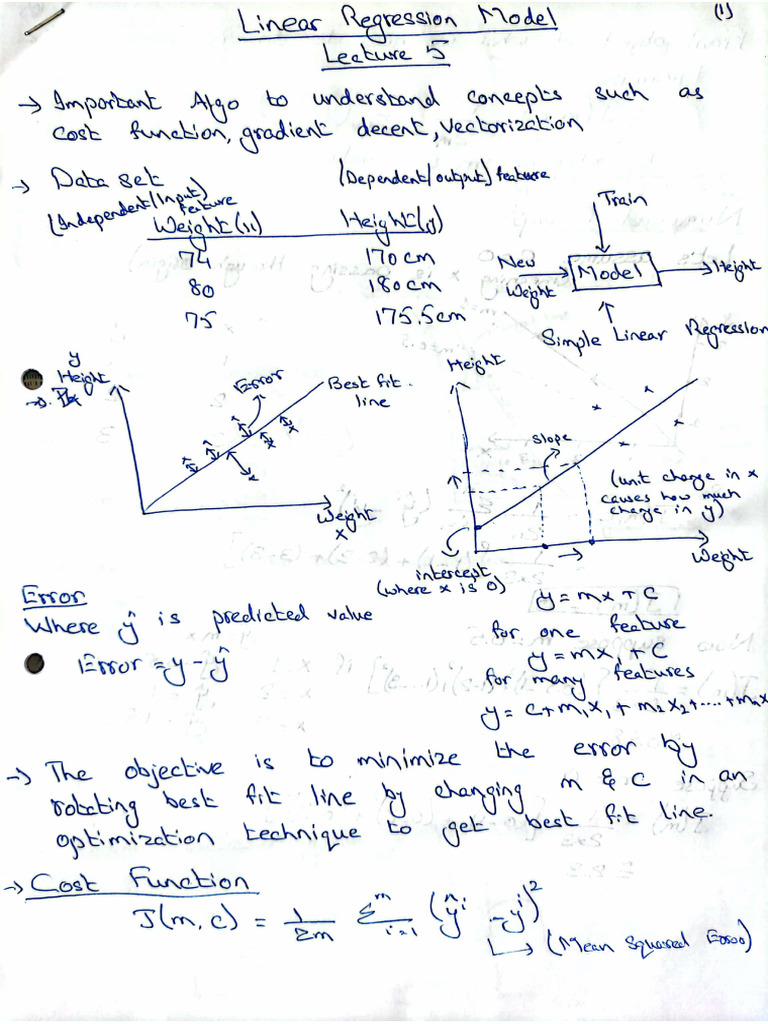 (1)
Linear Regression Model
Lecture 5
→ Important Algo to understand concepts such as
cost function, gradient decent, Vectorization
→ Data set
(Independent/Input) feature
(Dependent/output) feature
Weight(x) Height(y)
74 170 cm
80 180 cm
75 175.5cm
Train
New Weight
Model
Height
Simple Linear Regression
y
Height
Error
Best fit
line
Weight
x
Height
slope
(unit change in x
causes how much
change in y)
Weight
intercept
(where x is 0)
Error
Where ŷ is predicted value
Error = y - ŷ
y = mx + c
for one feature
y = mx₁ + c
for many features
y = c + m₁x₁ + m₂x₂ + .... + mₙxₙ
→ The objective is to minimize the error by
rotating best fit line by changing m & c in an
optimization technique to get best fit line.
→ Cost Function
J(m, c) = 1/2m Σᵐᵢ₌₁ (ŷⁱ - yⁱ)²
(Mean Squared Error)